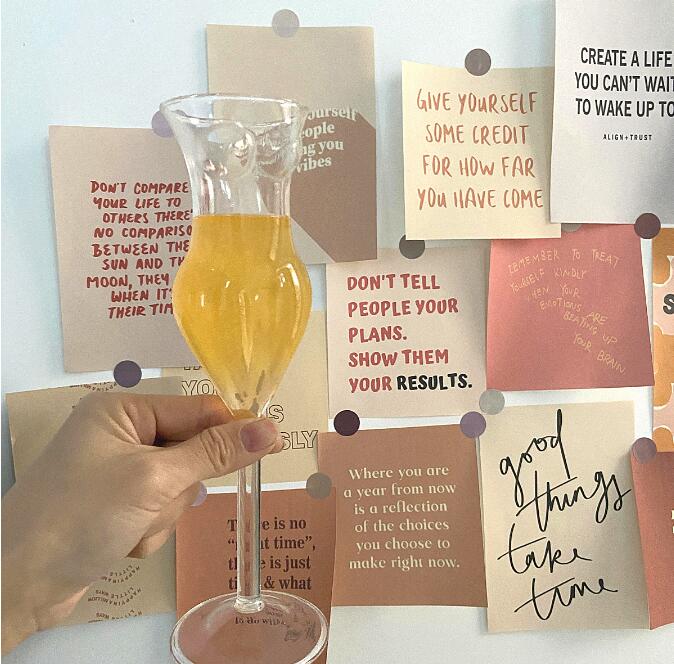 ourself
eople
ng you
vibes
GIVE YOURSELF
SOME CREDIT
FOR HOW FAR
YOU HAVE COME
CREATE A LIFE
YOU CAN'T WAIT
TO WAKE UP TO
ALIGN+TRUST
DON'T COMPARE
YOUR LIFE TO
OTHERS THERE'
NO COMPARISO
BETWEEN THE
SUN AND TH
MOON, THEY
WHEN IT'
THEIR TIM
DON'T TELL
PEOPLE YOUR
PLANS.
SHOW THEM
YOUR RESULTS.
REMEMBER TO TREAT
YOURSELF KINDLY
WHEN YOUR
EMOTIONS ARE
BEATING UP
YOUR BRAIN
YO
IS
SLY
Where you are
a year from now
is a reflection
of the choices
you choose to
make right now.
good
things
take
time
There is no
time",
is just
& what
HAPPINESS
LITTLE WAYS